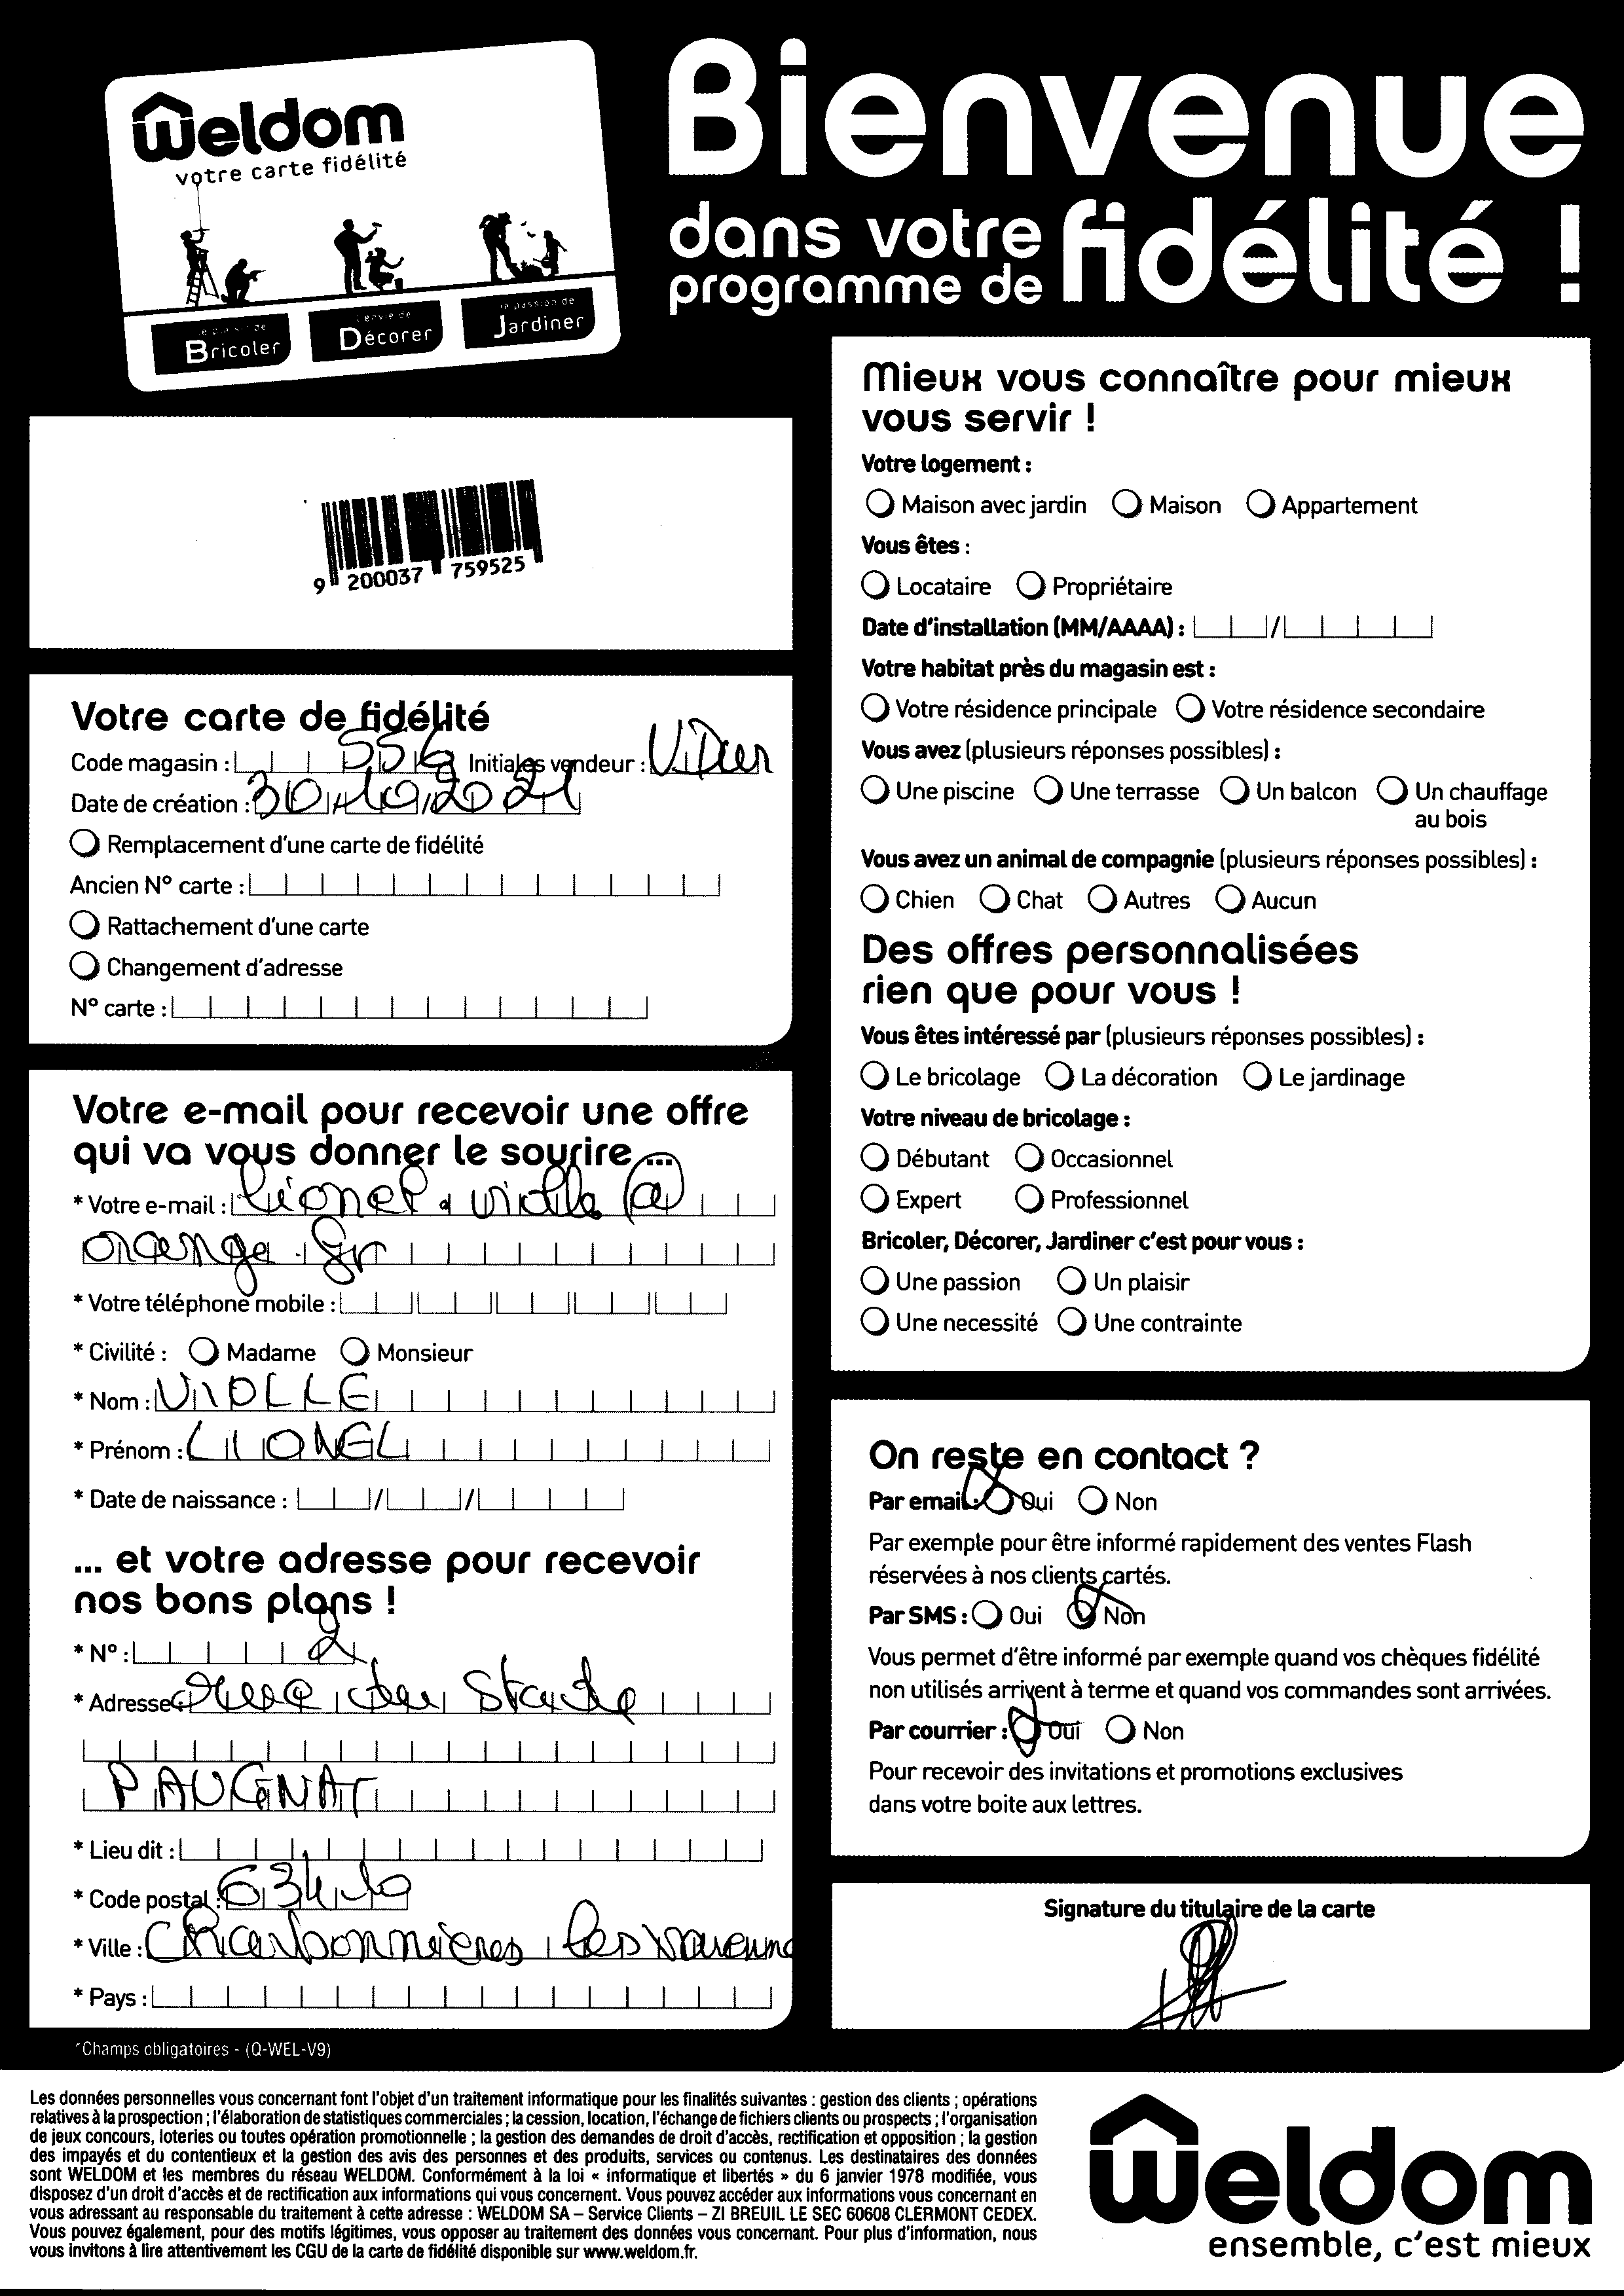 Weldom
votre carte fidélité
Bricoler
Décorer
Jardiner
Bienvenue
dans votre
programme de fidélité !
9 200037 759525
Votre carte de fidélité
Code magasin : 556 Initiales vendeur :
Date de création : 30/10/2021
Remplacement d'une carte de fidélité
Ancien N° carte :
Rattachement d'une carte
Changement d'adresse
N° carte :
Votre e-mail pour recevoir une offre
qui va vous donner le sourire ...
* Votre e-mail : lionel.violle@
orange.fr
* Votre téléphone mobile :
* Civilité : Madame Monsieur
* Nom : VIOLLE
* Prénom : LIONEL
* Date de naissance : / /
... et votre adresse pour recevoir
nos bons plans !
* N° : 2
* Adresse : rue du Stade
PAUGNAT
* Lieu dit :
* Code postal : 63410
* Ville : Charbonnieres les varenne
* Pays :
*Champs obligatoires - (Q-WEL-V9)
Mieux vous connaître pour mieux
vous servir !
Votre logement :
Maison avec jardin Maison Appartement
Vous êtes :
Locataire Propriétaire
Date d'installation (MM/AAAA) : /
Votre habitat près du magasin est :
Votre résidence principale Votre résidence secondaire
Vous avez (plusieurs réponses possibles) :
Une piscine Une terrasse Un balcon Un chauffage
au bois
Vous avez un animal de compagnie (plusieurs réponses possibles) :
Chien Chat Autres Aucun
Des offres personnalisées
rien que pour vous !
Vous êtes intéressé par (plusieurs réponses possibles) :
Le bricolage La décoration Le jardinage
Votre niveau de bricolage :
Débutant Occasionnel
Expert Professionnel
Bricoler, Décorer, Jardiner c'est pour vous :
Une passion Un plaisir
Une necessité Une contrainte
On reste en contact ?
Par email : Oui Non
Par exemple pour être informé rapidement des ventes Flash
réservées à nos clients cartés.
Par SMS : Oui Non
Vous permet d'être informé par exemple quand vos chèques fidélité
non utilisés arrivent à terme et quand vos commandes sont arrivées.
Par courrier : Oui Non
Pour recevoir des invitations et promotions exclusives
dans votre boite aux lettres.
Signature du titulaire de la carte
Les données personnelles vous concernant font l'objet d'un traitement informatique pour les finalités suivantes : gestion des clients ; opérations
relatives à la prospection ; l'élaboration de statistiques commerciales ; la cession, location, l'échange de fichiers clients ou prospects ; l'organisation
de jeux concours, loteries ou toutes opération promotionnelle ; la gestion des demandes de droit d'accès, rectification et opposition ; la gestion
des impayés et du contentieux et la gestion des avis des personnes et des produits, services ou contenus. Les destinataires des données
sont WELDOM et les membres du réseau WELDOM. Conformément à la loi « informatique et libertés » du 6 janvier 1978 modifiée, vous
disposez d'un droit d'accès et de rectification aux informations qui vous concernent. Vous pouvez accéder aux informations vous concernant en
vous adressant au responsable du traitement à cette adresse : WELDOM SA – Service Clients – ZI BREUIL LE SEC 60608 CLERMONT CEDEX.
Vous pouvez également, pour des motifs légitimes, vous opposer au traitement des données vous concernant. Pour plus d'information, nous
vous invitons à lire attentivement les CGU de la carte de fidélité disponible sur www.weldom.fr.
Weldom
ensemble, c'est mieux